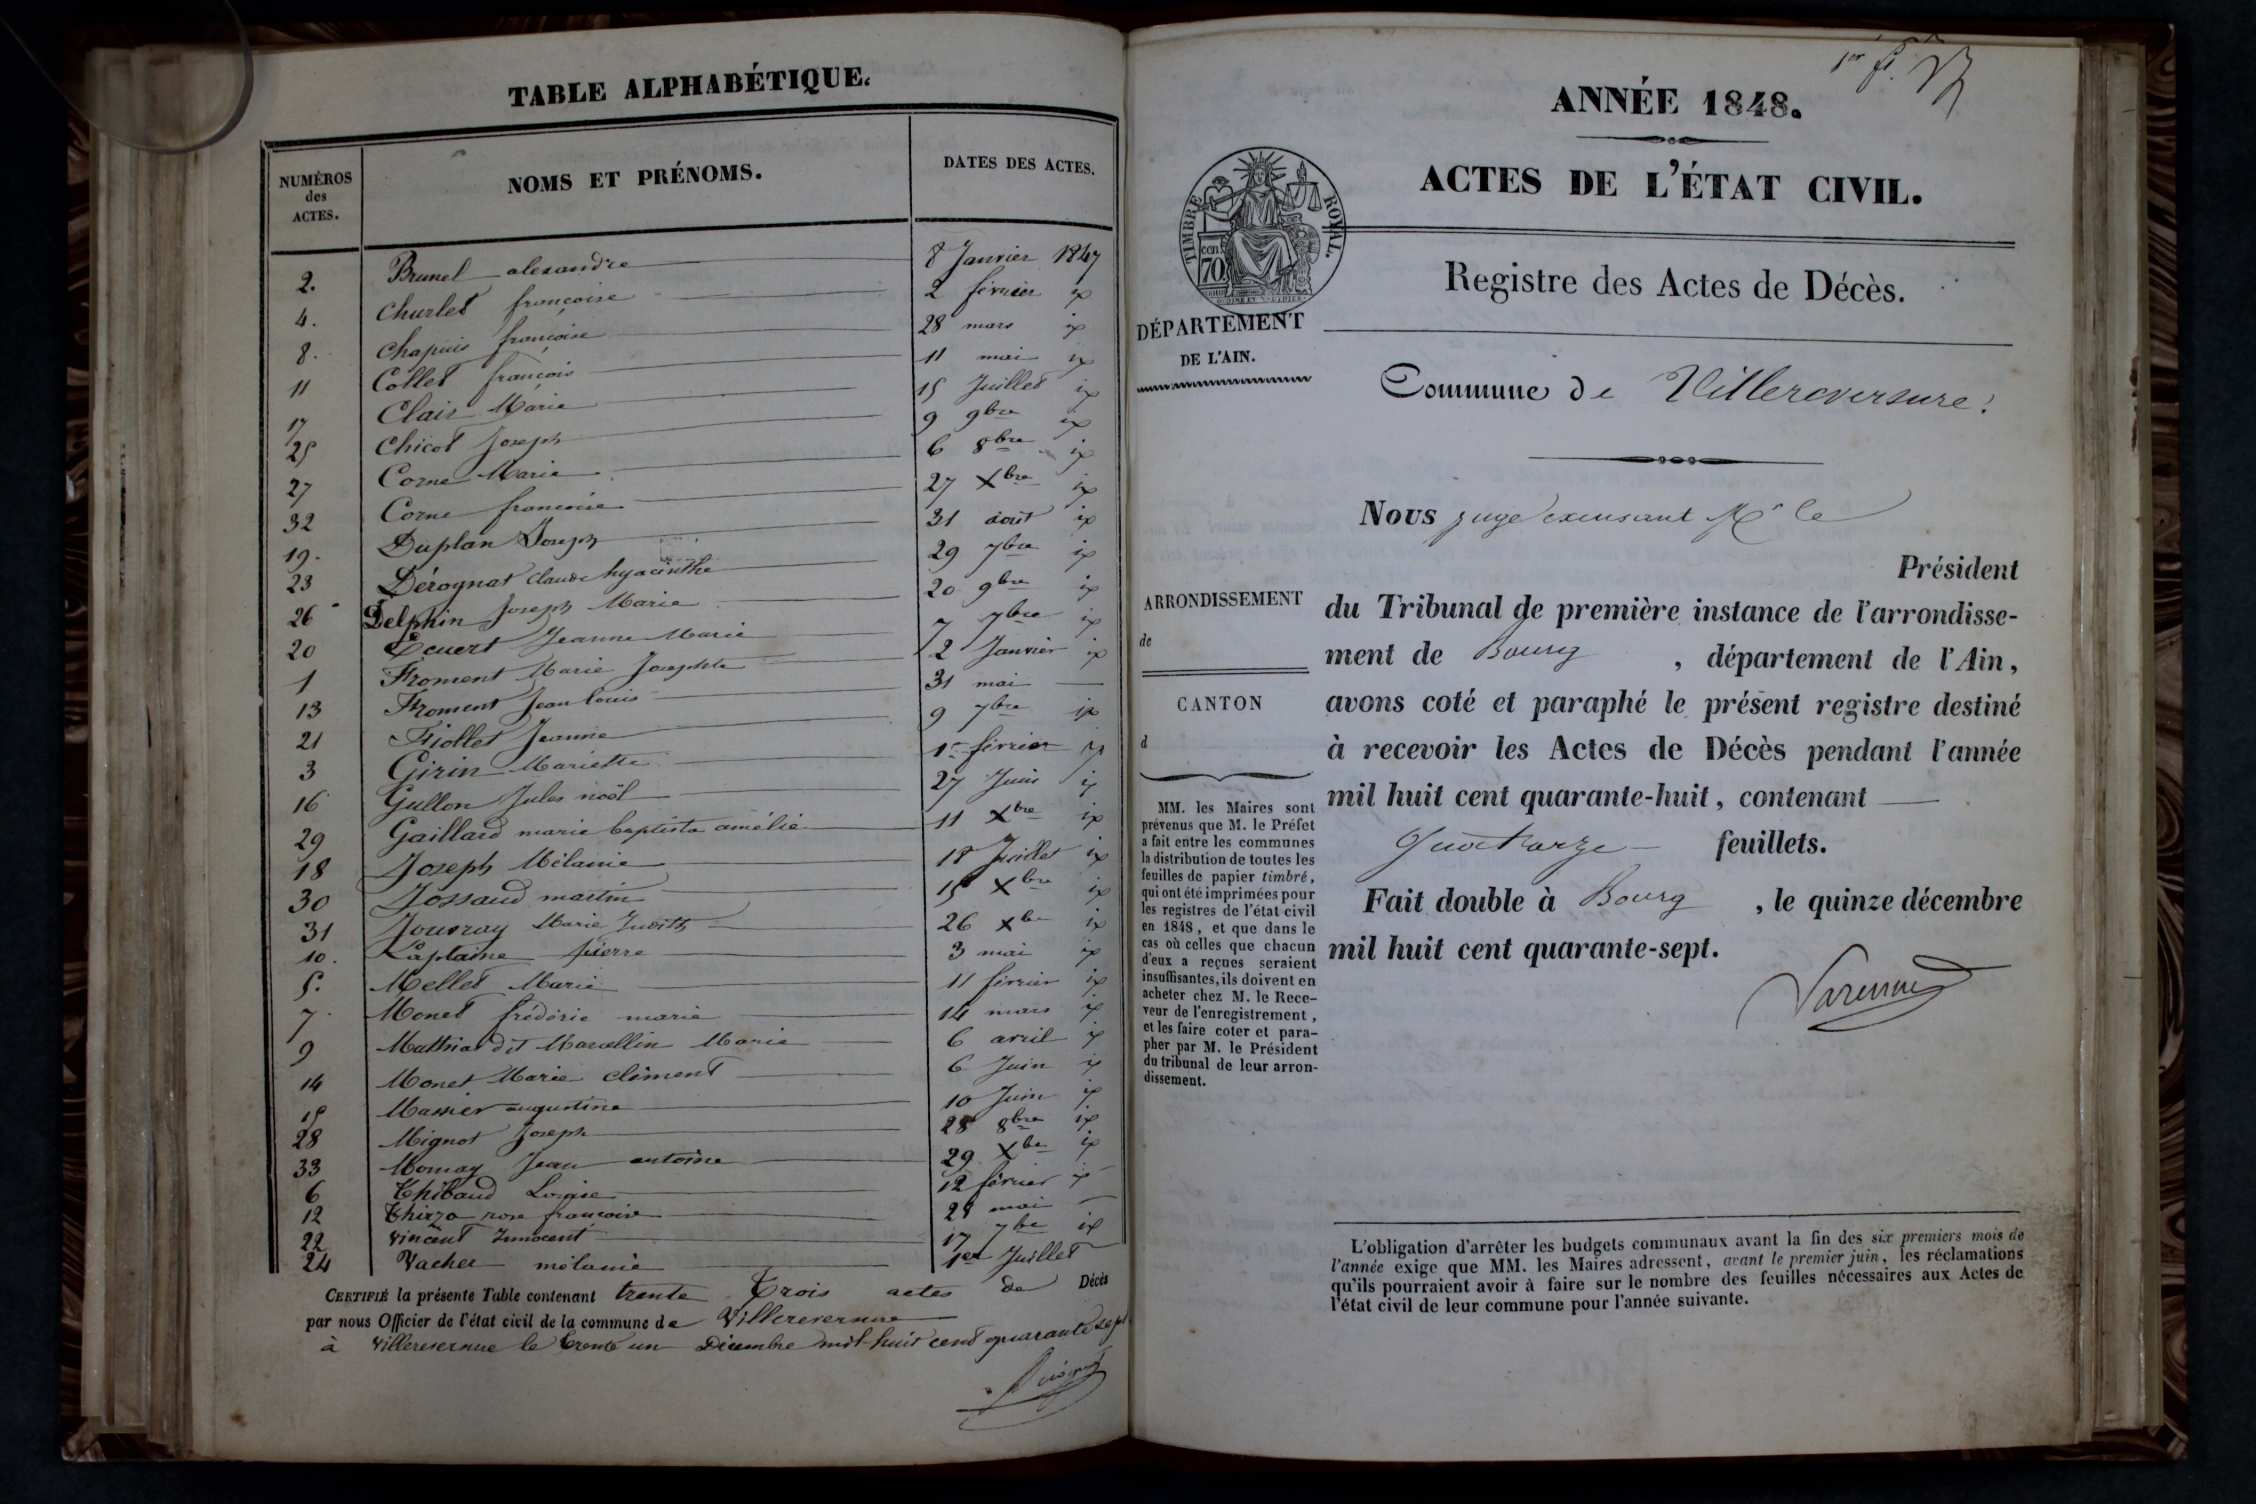 TABLE ALPHABÉTIQUE.
NUMÉROS des ACTES. NOMS ET PRÉNOMS. DATES DES ACTES.
2. Brunel alexandre 8 Janvier 1847
4. Churlet françoise 2 février id
8. Chapuis françoise 28 mars id
11 Collet françois 11 mai id
17 Clair Marie 15 Juillet id
25 Chicot Joseph 9 9bre id
27 Corne Marie 6 8bre id
32 Corne francoise 27 Xbre id
19. Duplan Joseph 31 aout id
23 Dérognat Claude hyacinthe 29 7bre id
26 Delphin Joseph Marie 20 9bre id
20 Ecuert Jeanne Marie 7 7bre id
1 Froment Marie Josephte 2 Janvier id
13 Froment Jean louis 31 mai
21 Fiollet Jeanne 9 7bre id
3 Girin Mariette 1er février id
16 Gullon Jules noël 27 Juin id
29 Gaillard marie baptiste amélie 11 Xbre id
18 Joseph Mélanie 18 Juillet id
30 Jossaud martin 15 Xbre id
31 Jouvray Marie Judith 26 Xbre id
10. Laplaine pierre 3 mai id
5. Mellet Marie 11 février id
7 Monet frédéric marie 14 mars id
9 Mathias dit Marcellin Marie 6 avril id
14 Monet Marie clément 6 Juin id
15 Massier augustine 10 Juin id
28 Mignot Joseph 28 8bre id
33 Mornay Jean antoine 29 Xbre id
6 Thibaud Louise 12 février id
12 rose françoise 28 mai
22 Vincent Innocent 17 7bre id
24 Vacher mélanie 1er Juillet
CERTIFIÉ la présente Table contenant trente Trois actes de Décès
par nous Officier de l'état civil de la commune de Villereversure
à Villereversure le trente un Décembre mil huit cent quarante sept
1er ft.
ANNÉE 1848.
ACTES DE L'ÉTAT CIVIL.
TIMBRE ROYAL.
70
Registre des Actes de Décès.
DÉPARTEMENT
DE L'AIN.
Commune de Villereversure.
Nous juge excusant Mr le
Président
ARRONDISSEMENT
de
du Tribunal de première instance de l'arrondisse-
ment de Bourg , département de l'Ain,
CANTON
d
avons coté et paraphé le présent registre destiné
à recevoir les Actes de Décès pendant l'année
mil huit cent quarante-huit, contenant
quatorze feuillets.
Fait double à Bourg , le quinze décembre
mil huit cent quarante-sept.
Varenne
MM. les Maires sont
prévenus que M. le Préfet
a fait entre les communes
la distribution de toutes les
feuilles de papier timbré,
qui ont été imprimées pour
les registres de l'état civil
en 1848, et que dans le
cas où celles que chacun
d'eux a reçues seraient
insuffisantes, ils doivent en
acheter chez M. le Rece-
veur de l'enregistrement,
et les faire coter et para-
pher par M. le Président
du tribunal de leur arron-
dissement.
L'obligation d'arrêter les budgets communaux avant la fin des six premiers mois de
l'année exige que MM. les Maires adressent, avant le premier juin, les réclamations
qu'ils pourraient avoir à faire sur le nombre des feuilles nécessaires aux Actes de
l'état civil de leur commune pour l'année suivante.